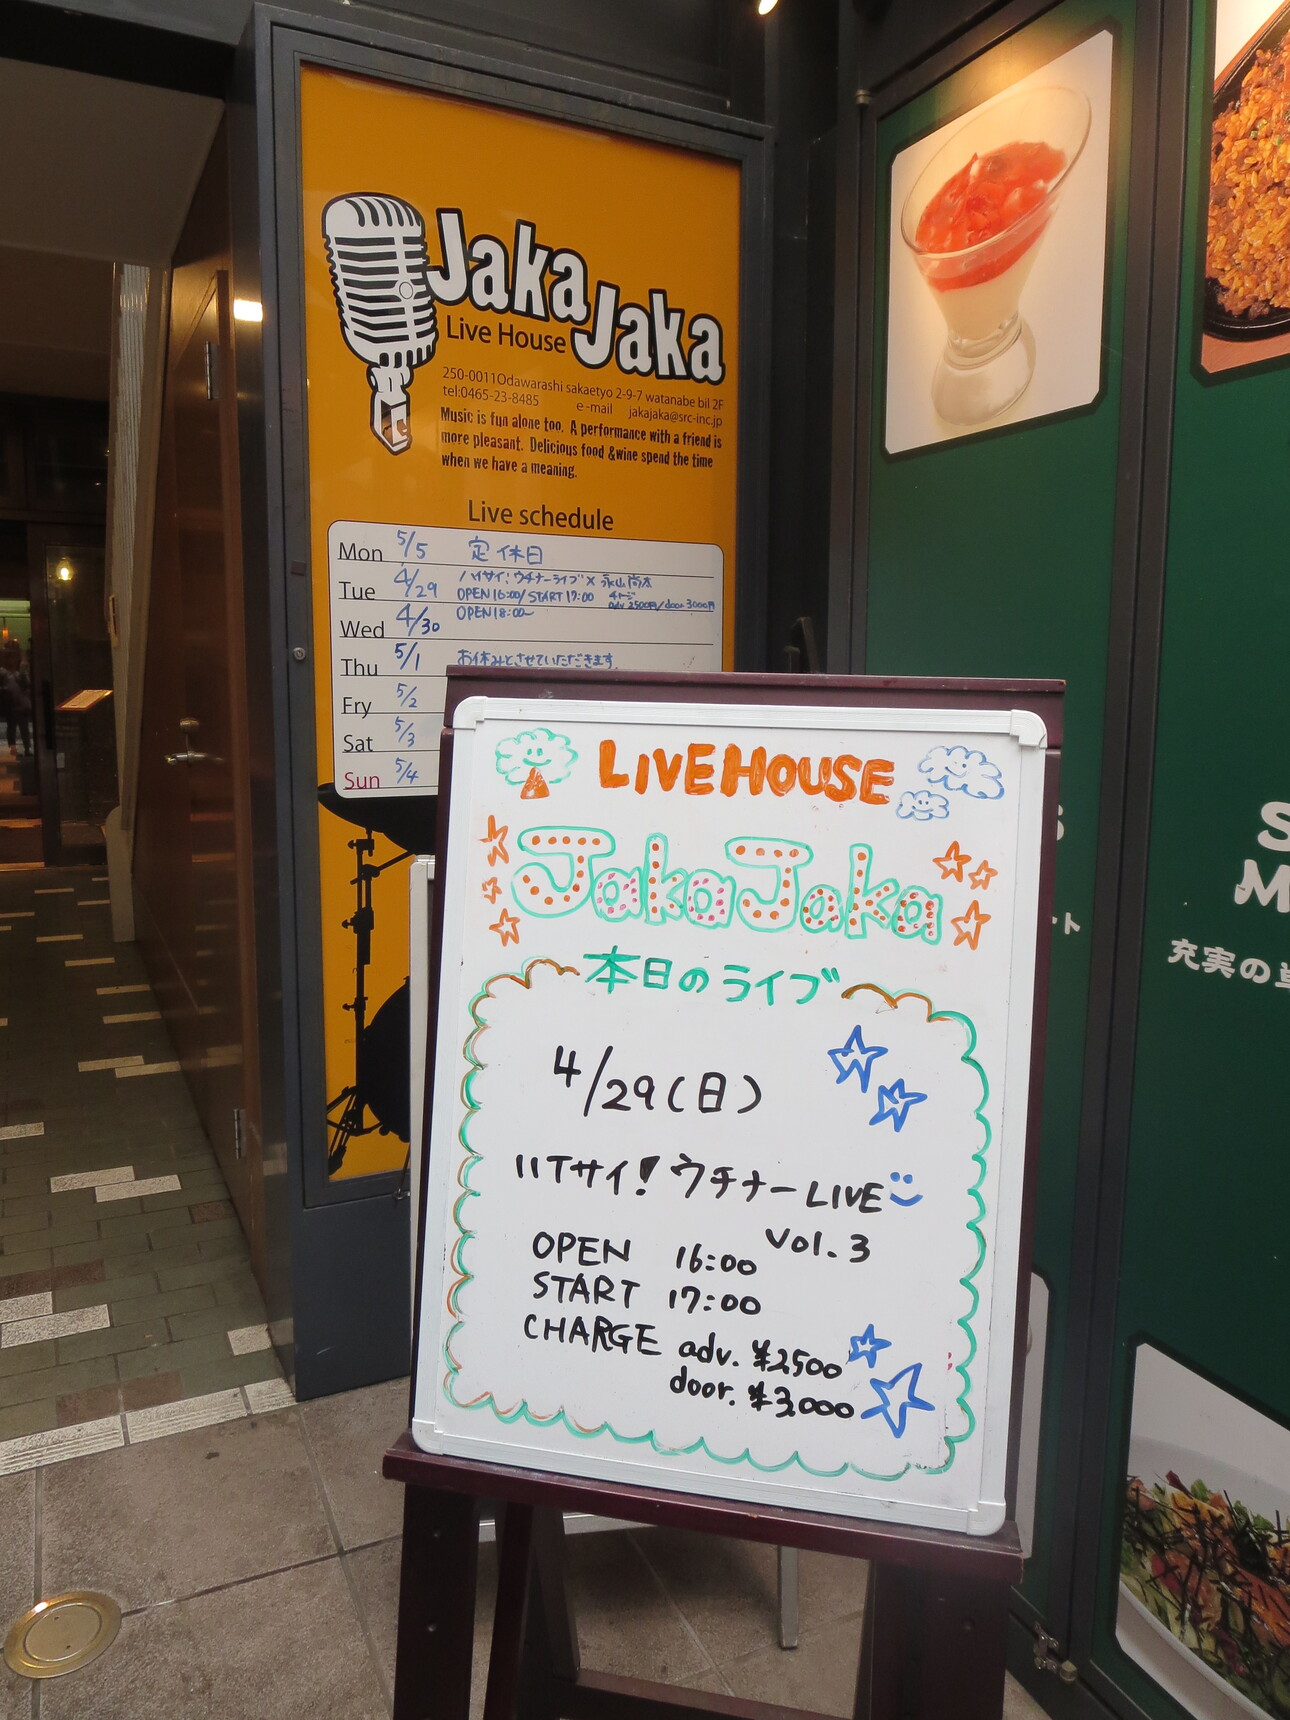 Jaka Jaka
Live House
250-0011Odawarashi sakaetyo 2-9-7 watanabe bil 2F
tel:0465-23-8485 e-mail jakajaka@src-inc.jp
Music is fun alone too. A performance with a friend is
more pleasant. Delicious food &wine spend the time
when we have a meaning.
Live schedule
Mon 5/5 定休日
Tue 4/29 ハイサイ!ウチナーライブ× 永山尚太
OPEN16:00/START17:00 チャージ
adv 2500円/door 3000円
Wed 4/30 OPEN18:00~
Thu 5/1 お休みとさせていただきます。
Fry 5/2
Sat 5/3
Sun 5/4
LIVE HOUSE
JakaJaka
本日のライブ
4/29(日)
ハイサイ!ウチナーLIVE
vol.3
OPEN 16:00
START 17:00
CHARGE adv. ¥2500
door. ¥3,000
S
M
充実の